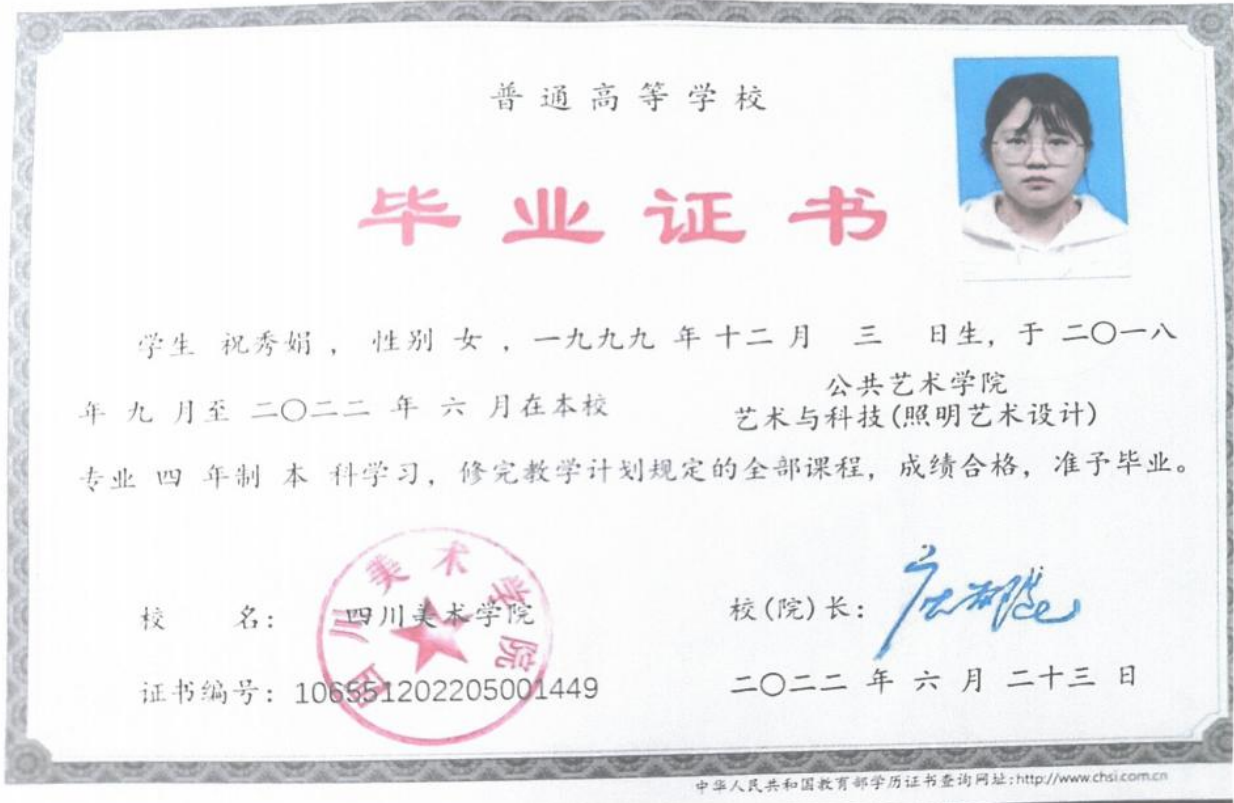 普通高等学校
毕业证书
学生 祝秀娟 ， 性别 女 ，一九九九 年 十二 月 三 日生，于 二〇一八
年 九 月至 二〇二二 年 六 月在本校 公共艺术学院
艺术与科技(照明艺术设计)
专业 四 年制 本 科学习，修完教学计划规定的全部课程，成绩合格，准予毕业。
四川美术学院
校 名： 四川美术学院 校(院)长：
证书编号：106551202205001449 二〇二二 年 六 月 二十三 日
中华人民共和国教育部学历证书查询网址:http://www.chsi.com.cn